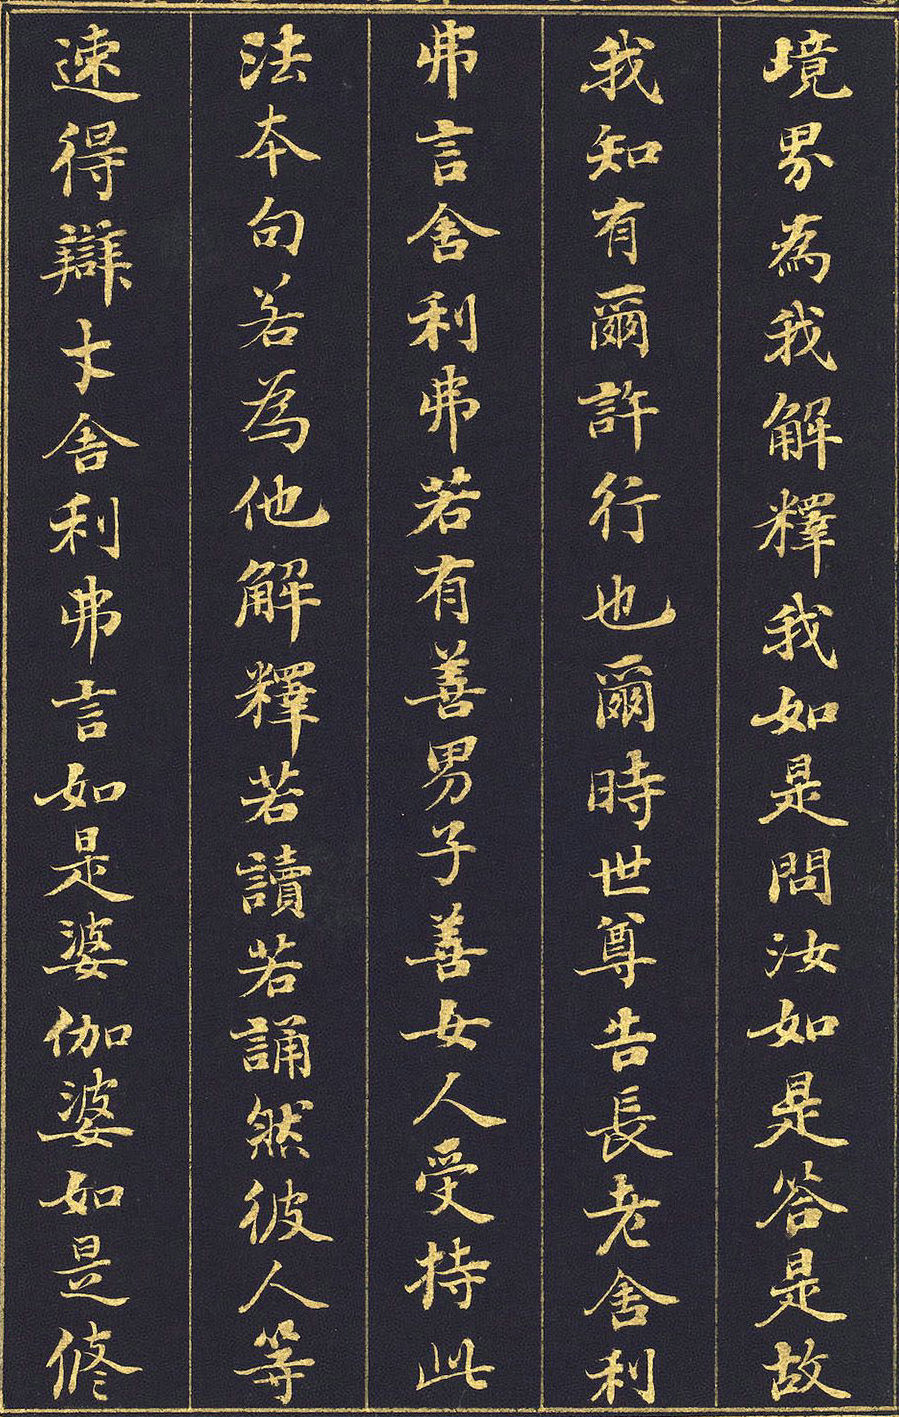 境界為我解釋我如是問汝如是答是故
我知有爾許行也爾時世尊告長老舍利
弗言舍利弗若有善男子善女人受持此
法本句若為他解釋若讀若誦然彼人等
速得辯才舍利弗言如是婆伽婆如是修